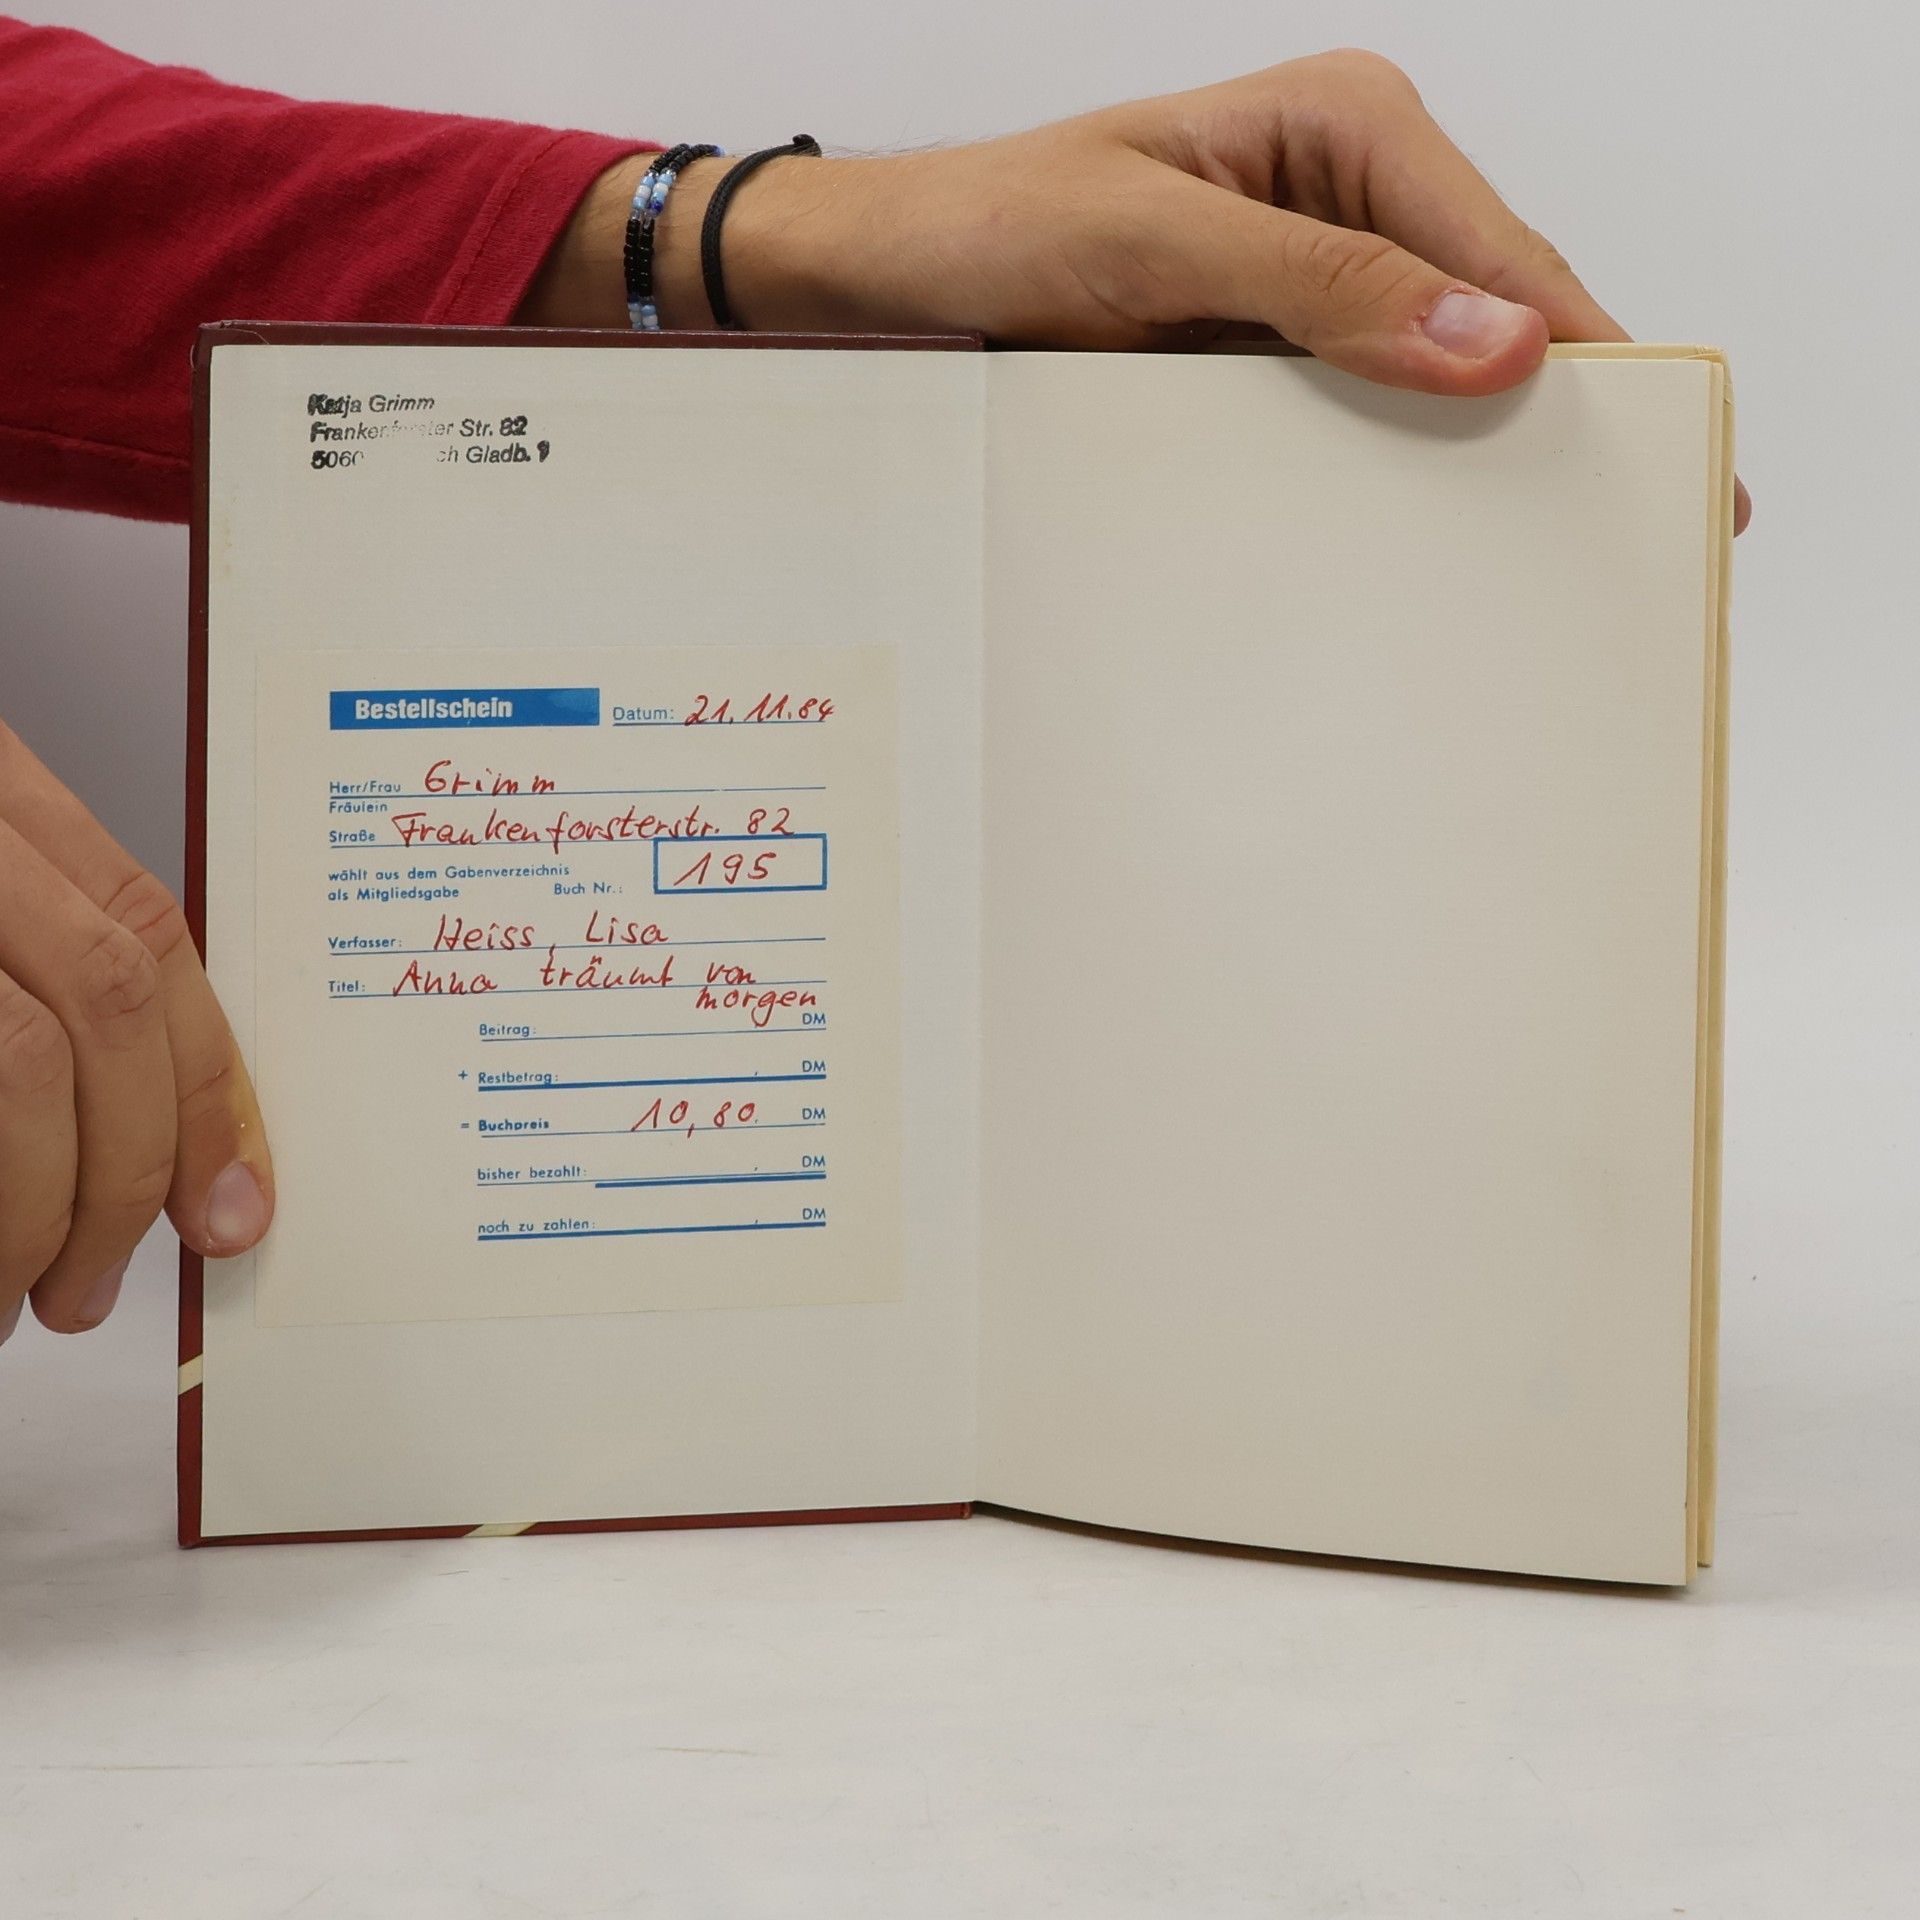 Katja Grimm
Frankenforster Str. 82
5060 ch Gladb. 1
Bestellschein Datum: 21.11.84
Herr/Frau Grimm
Fräulein
Straße Frankenforsterstr. 82
wählt aus dem Gabenverzeichnis
als Mitgliedsgabe Buch Nr.: 195
Verfasser: Heiss, Lisa
Titel: Anna träumt von
morgen
Beitrag: DM
+ Restbetrag: , DM
= Buchpreis 10,80 DM
bisher bezahlt: , DM
noch zu zahlen: , DM